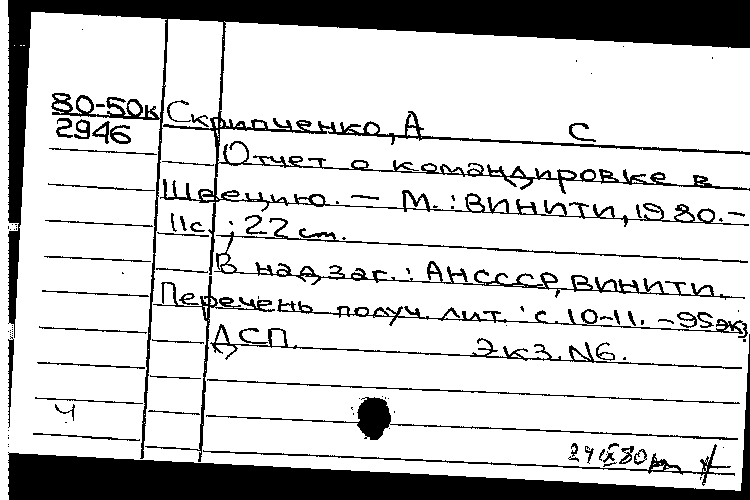 80-50к Скрипченко, А С
2946
Отчет о командировке в
Швецию. — М.: ВИНИТИ, 1980. –
11с.; 22 см.
В надзаг.: АНСССР, ВИНИТИ.
Перечень получ. лит.: с. 10-11. – 95 экз
ДСП. Экз. N6.
Ч
24 IX 80